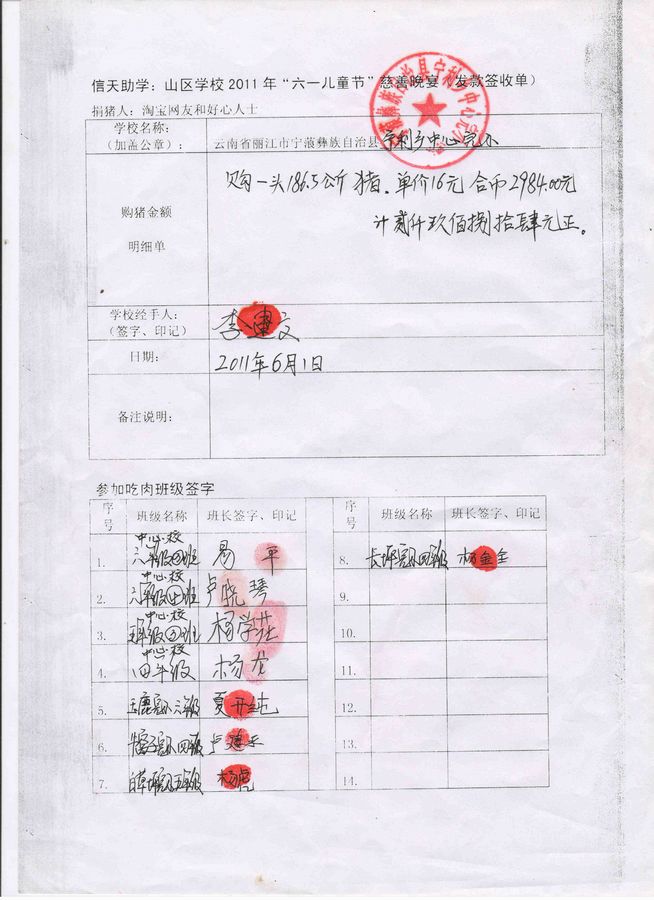 信天助学：山区学校2011年“六一儿童节”慈善晚宴（发款签收单）
捐猪人：淘宝网友和好心人士
学校名称：
（加盖公章）：
云南省丽江市宁蒗彝族自治县宁利乡中心完小
购一头186.5公斤猪.单价16元合币2984.00元
计贰仟玖佰捌拾肆元正。
购猪金额
明细单
学校经手人：
（签字、印记）
李建文
日期：
2011年6月1日
备注说明：
参加吃肉班级签字
序号 班级名称 班长签字、印记 序号 班级名称 班长签字、印记
1. 中心校 六年级②班 易平
2. 中心校 六年级①班 卢晓琴
3. 中心校 五年级②班 杨学
4. 中心校 四年级 杨龙
5. 完小六年级 夏开纯
6. 完小四年级 卢建
7. 完小五年级 杨虎
8. 完小四年级 杨金
9.
10.
11.
12.
13.
14.